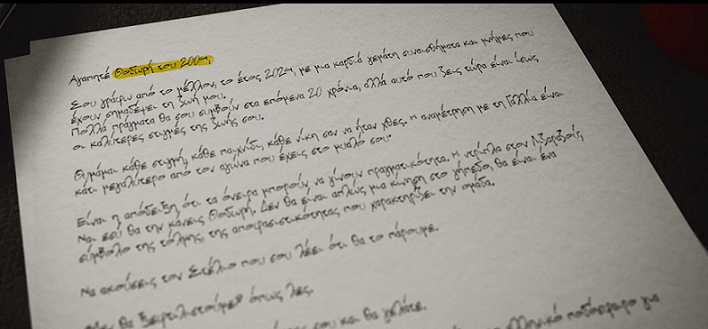 Αγαπητέ Θοδωρή του 2004,
Σου γράφω από το μέλλον, το έτος 2024, με μια καρδιά γεμάτη συναισθήματα και μνήμες που
έχουν σημαδέψει τη ζωή μου.
Πολλά πράγματα θα σου συμβούν στα επόμενα 20 χρόνια, αλλά αυτό που ζεις τώρα είναι ίσως
οι καλύτερες στιγμές της ζωής σου.
Θυμάμαι κάθε στιγμή, κάθε παιχνίδι, κάθε νίκη σαν να ήταν χθες. Η αναμέτρηση με τη Γαλλία είναι
κάτι μεγαλύτερο από τον αγώνα που έχεις στο μυαλό σου.
Είναι η απόδειξη ότι τα όνειρα μπορούν να γίνουν πραγματικότητα. Η ντρίπλα στον Λιζαραζού,
Ναι εσύ θα την κάνεις Θοδωρή. Δεν θα είναι απλώς μια κίνηση στο γήπεδο, θα είναι ένα
σύμβολο της τόλμης, της αποφασιστικότητας που χαρακτηρίζει την ομάδα.
Να ακούσεις τον Στέλιο που σου λέει ότι θα το πάρουμε.
θα όπως λες.
σου και θα γελάτε.
ποδόσφαιρο για